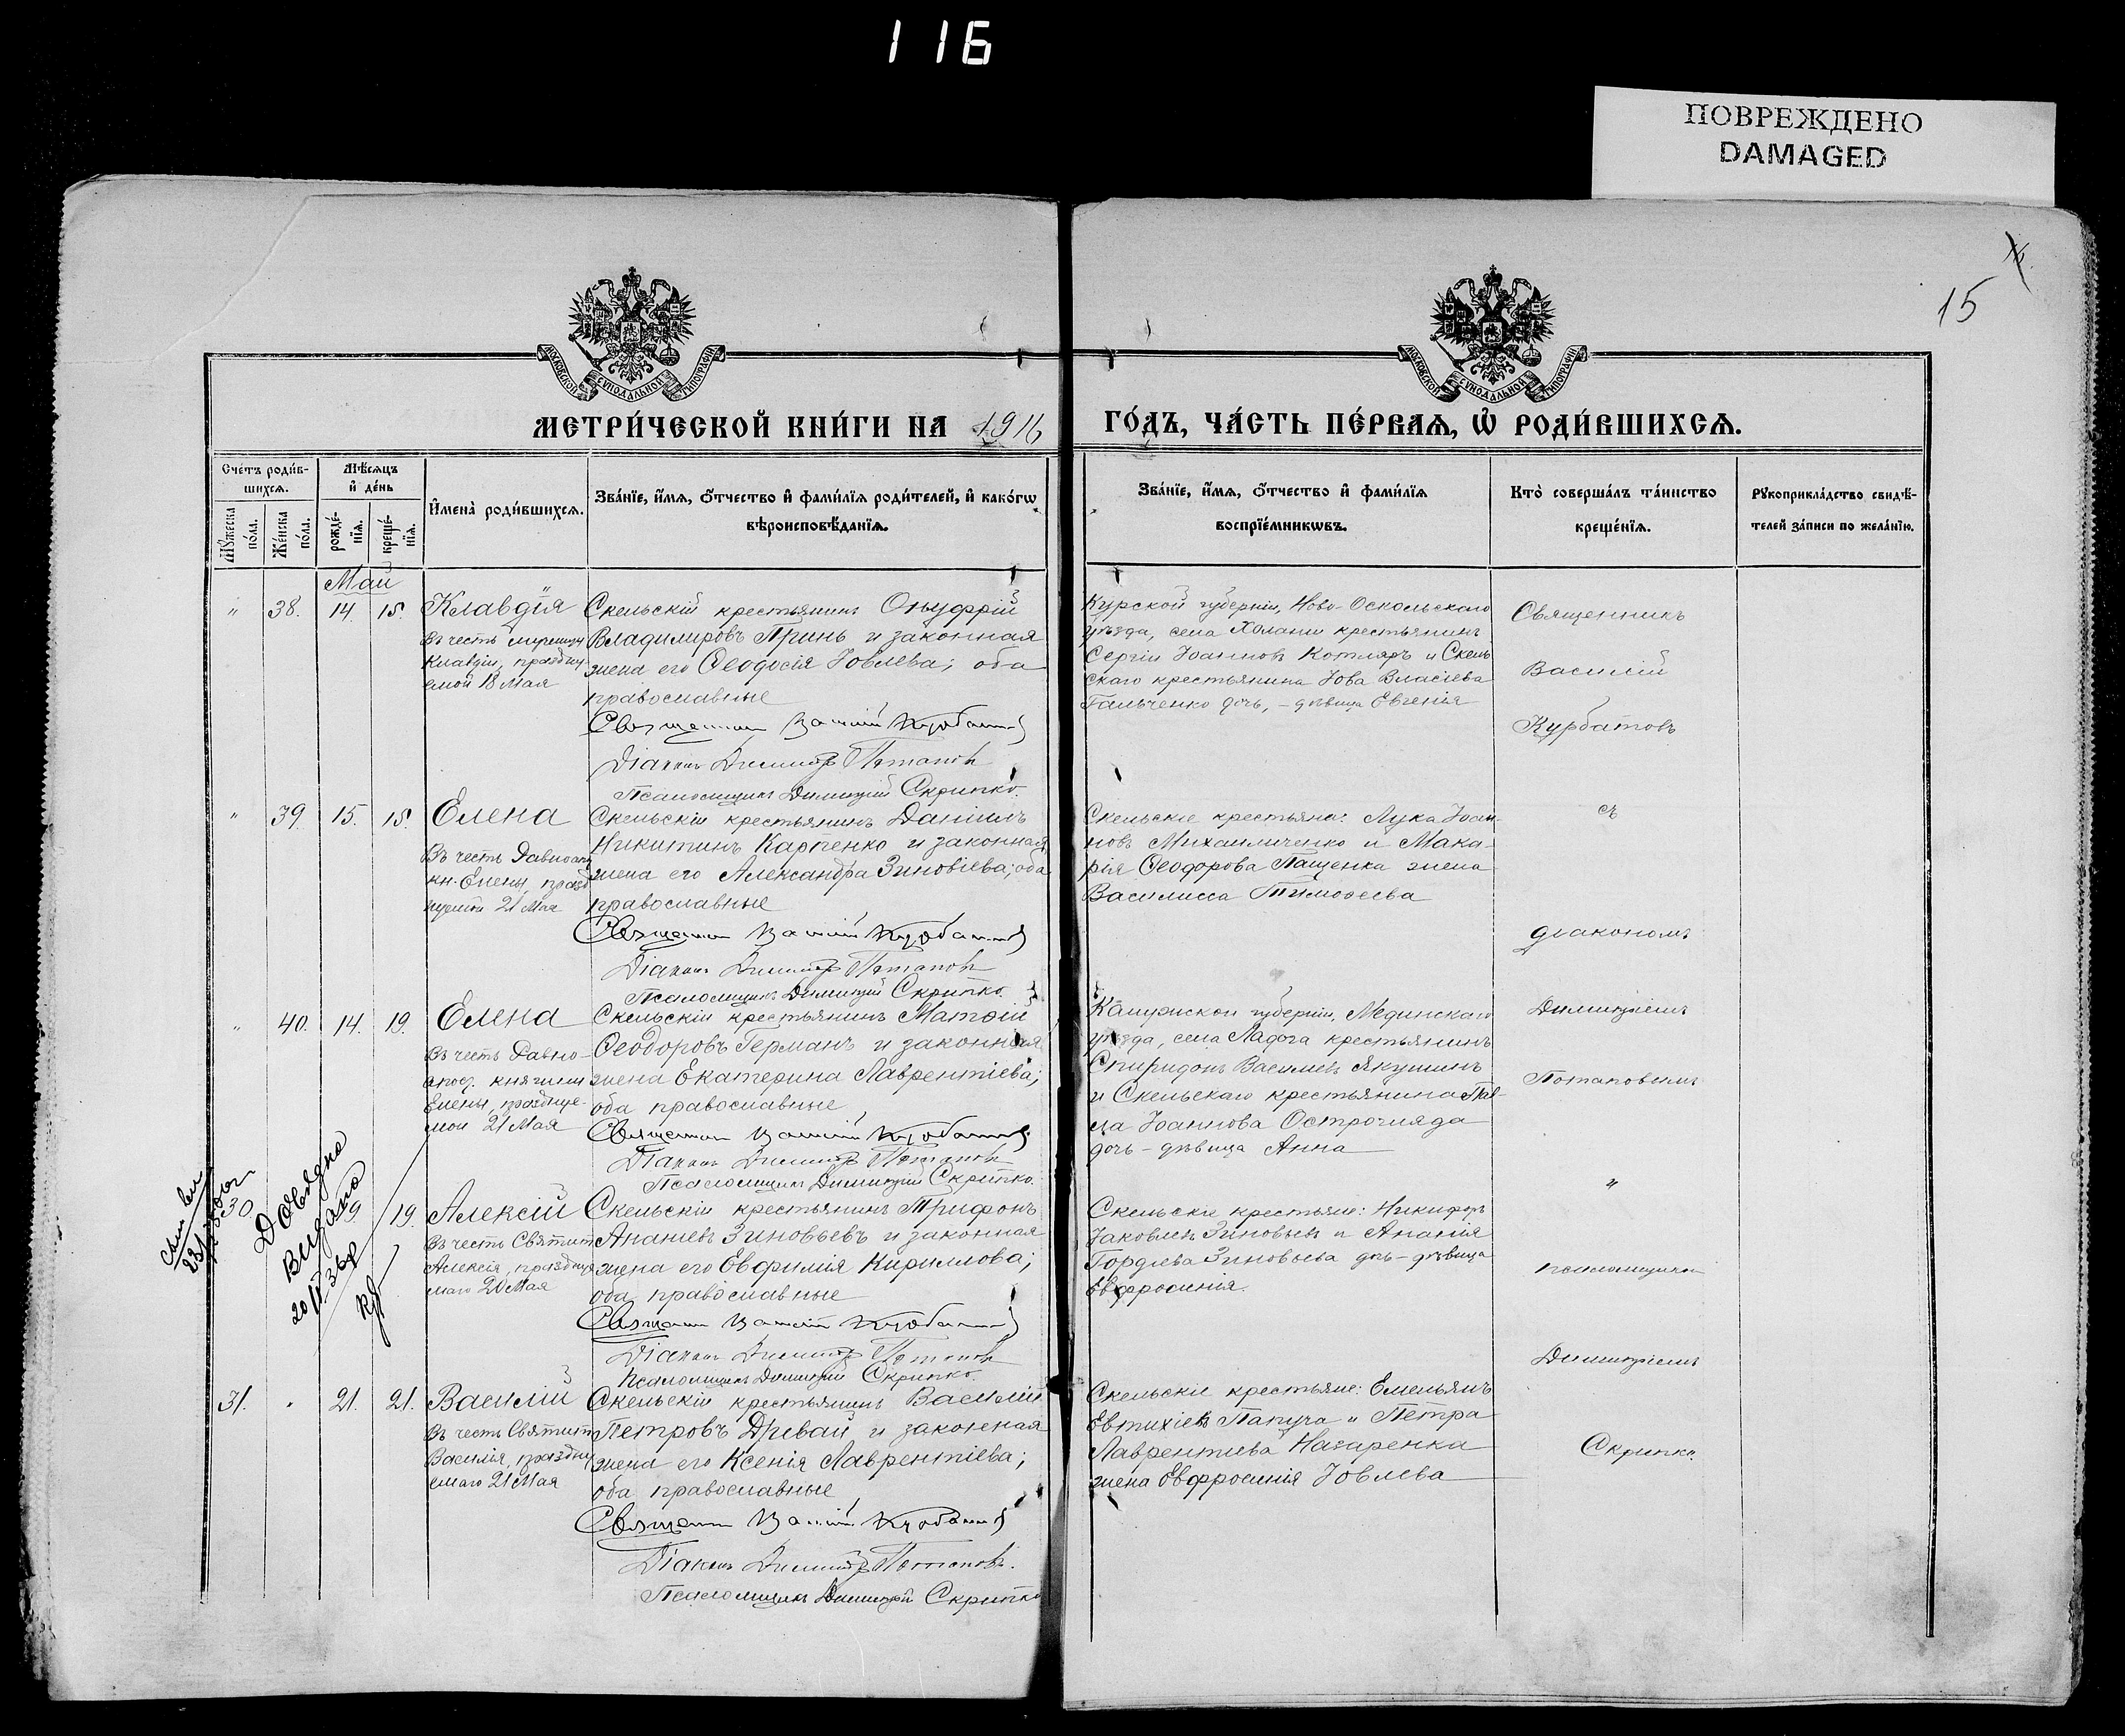 116
ПОВРЕЖДЕНО
DAMAGED
15
МОСКОВСКОЙ СѴНОДАЛЬНОЙ ТИПОГРАФІИ
МОСКОВСКОЙ СѴНОДАЛЬНОЙ ТИПОГРАФІИ
МЕТРИ́ЧЕСКОЙ КНИ́ГИ НА 1916
ГО́ДЪ, ЧА́СТЬ ПЕ́РВАѦ, Ѡ҆ РОДИ́ВШИХСѦ.
Сче́тъ роди́в-
шихсѧ.
Мꙋ́жеска по́ла.
Же́нска по́ла.
Мѣ́сѧцъ
и҆ де́нь
рожде́-
нїѧ.
креще́-
нїѧ.
И҆мена̀ роди́вшихсѧ.
Зва́нїе, и҆́мѧ, ѻ҆́тчество и҆ фами́лїѧ роди́телей, и҆ како́гѡ
вѣроисповѣ́данїѧ.
Зва́нїе, и҆́мѧ, ѻ҆́тчество и҆ фами́лїѧ
воспрїе́мникѡвъ.
Кто̀ соверша́лъ та́инство
креще́нїѧ.
Рꙋкоприкла́дство свидѣ́-
телей за́писи по жела́нїю.
Май
" 38. 14. 15. Клавдія
Въ честь мученицы
Клавдіи, праздну-
емой 18 Мая
Скельскій крестьянинъ Онуфрій
Владиміровъ Принь и законная
жена его Ѳеодосія Іовлева; оба
православные
Священникъ Василій Курбатовъ
Діаконъ Димитрій Потаповъ
Псаломщикъ Димитрій Скрипко.
Курской губерніи, Ново-Оскольскаго
уѣзда, села Холани крестьянинъ
Сергій Іоанновъ Котляръ и Скель-
скаго крестьянина Іова Власіева
Гальченко дочь, - дѣвица Евгенія
Священникъ
Василій
Курбатовъ
" 39. 15. 15. Елена
Въ честь Равноап.
кн. Елены, празд
нуемой 21 Мая
Скельскій крестьянинъ Даніилъ
Никитинъ Карпенко и законная
жена его Александра Зиновіева; оба
православные
Священникъ Василій Курбатовъ
Діаконъ Димитрій Потаповъ
Псаломщикъ Димитрій Скрипко.
Скельскіе крестьяне: Лука Іоан-
новъ Михаиличенко и Мака-
рія Ѳеодорова Пащенка жена
Василисса Тимоѳеева
съ
діакономъ
" 40. 14. 19. Елена
Въ честь Равно-
апос. княгини
Елены, праздуе-
мой 21 Мая
Скельскій крестьянинъ Матѳій
Ѳеодоровъ Германъ и законная
жена Екатерина Лаврентіева;
оба православные
Священникъ Василій Курбатовъ
Діаконъ Димитрій Потаповъ
Псаломщикъ Димитрій Скрипко.
Калужской губерніи, Мединскаго
уѣзда, села Ладога крестьянинъ
Спиридонъ Василіевъ Якушинъ
и Скельскаго крестьянина Пав-
ла Іоаннова Острогляда
дочь - дѣвица Анна
Димитріемъ
Потаповымъ
"
Довідка
видана
30 19. 19. Алексій
Въ честь Святит.
Алексія, праздну
емаго 20 Мая
Скельскій крестьянинъ Трифонъ
Ананіевъ Зиновьевъ и законная
жена его Евфимія Кириллова;
оба православные
Священникъ Василій Курбатовъ
Діаконъ Димитрій Потаповъ
Псаломщикъ Димитрій Скрипко.
Скельскіе крестьяне: Никифоръ
Іаковлевъ Зиновьевъ и Ананія
Гордіева Зиновьева дочь - дѣвица
Евфросинія.
псаломщикомъ
Димитріемъ
31. " 21. 21. Василій
Въ честь Святит.
Василія, праздну
емаго 21 Мая
Скельскій крестьянинъ Василій
Петровъ Древаль и законная
жена его Ксенія Лаврентіева;
оба православные
Священникъ Василій Курбатовъ
Діаконъ Димитрій Потаповъ.
Псаломщикъ Димитрій Скрипко
Скельскіе крестьяне: Емельянъ
Евтихіевъ Папуча и Петра
Лаврентіева Назаренка
жена Евфросинія Іовлева
Скрипко.